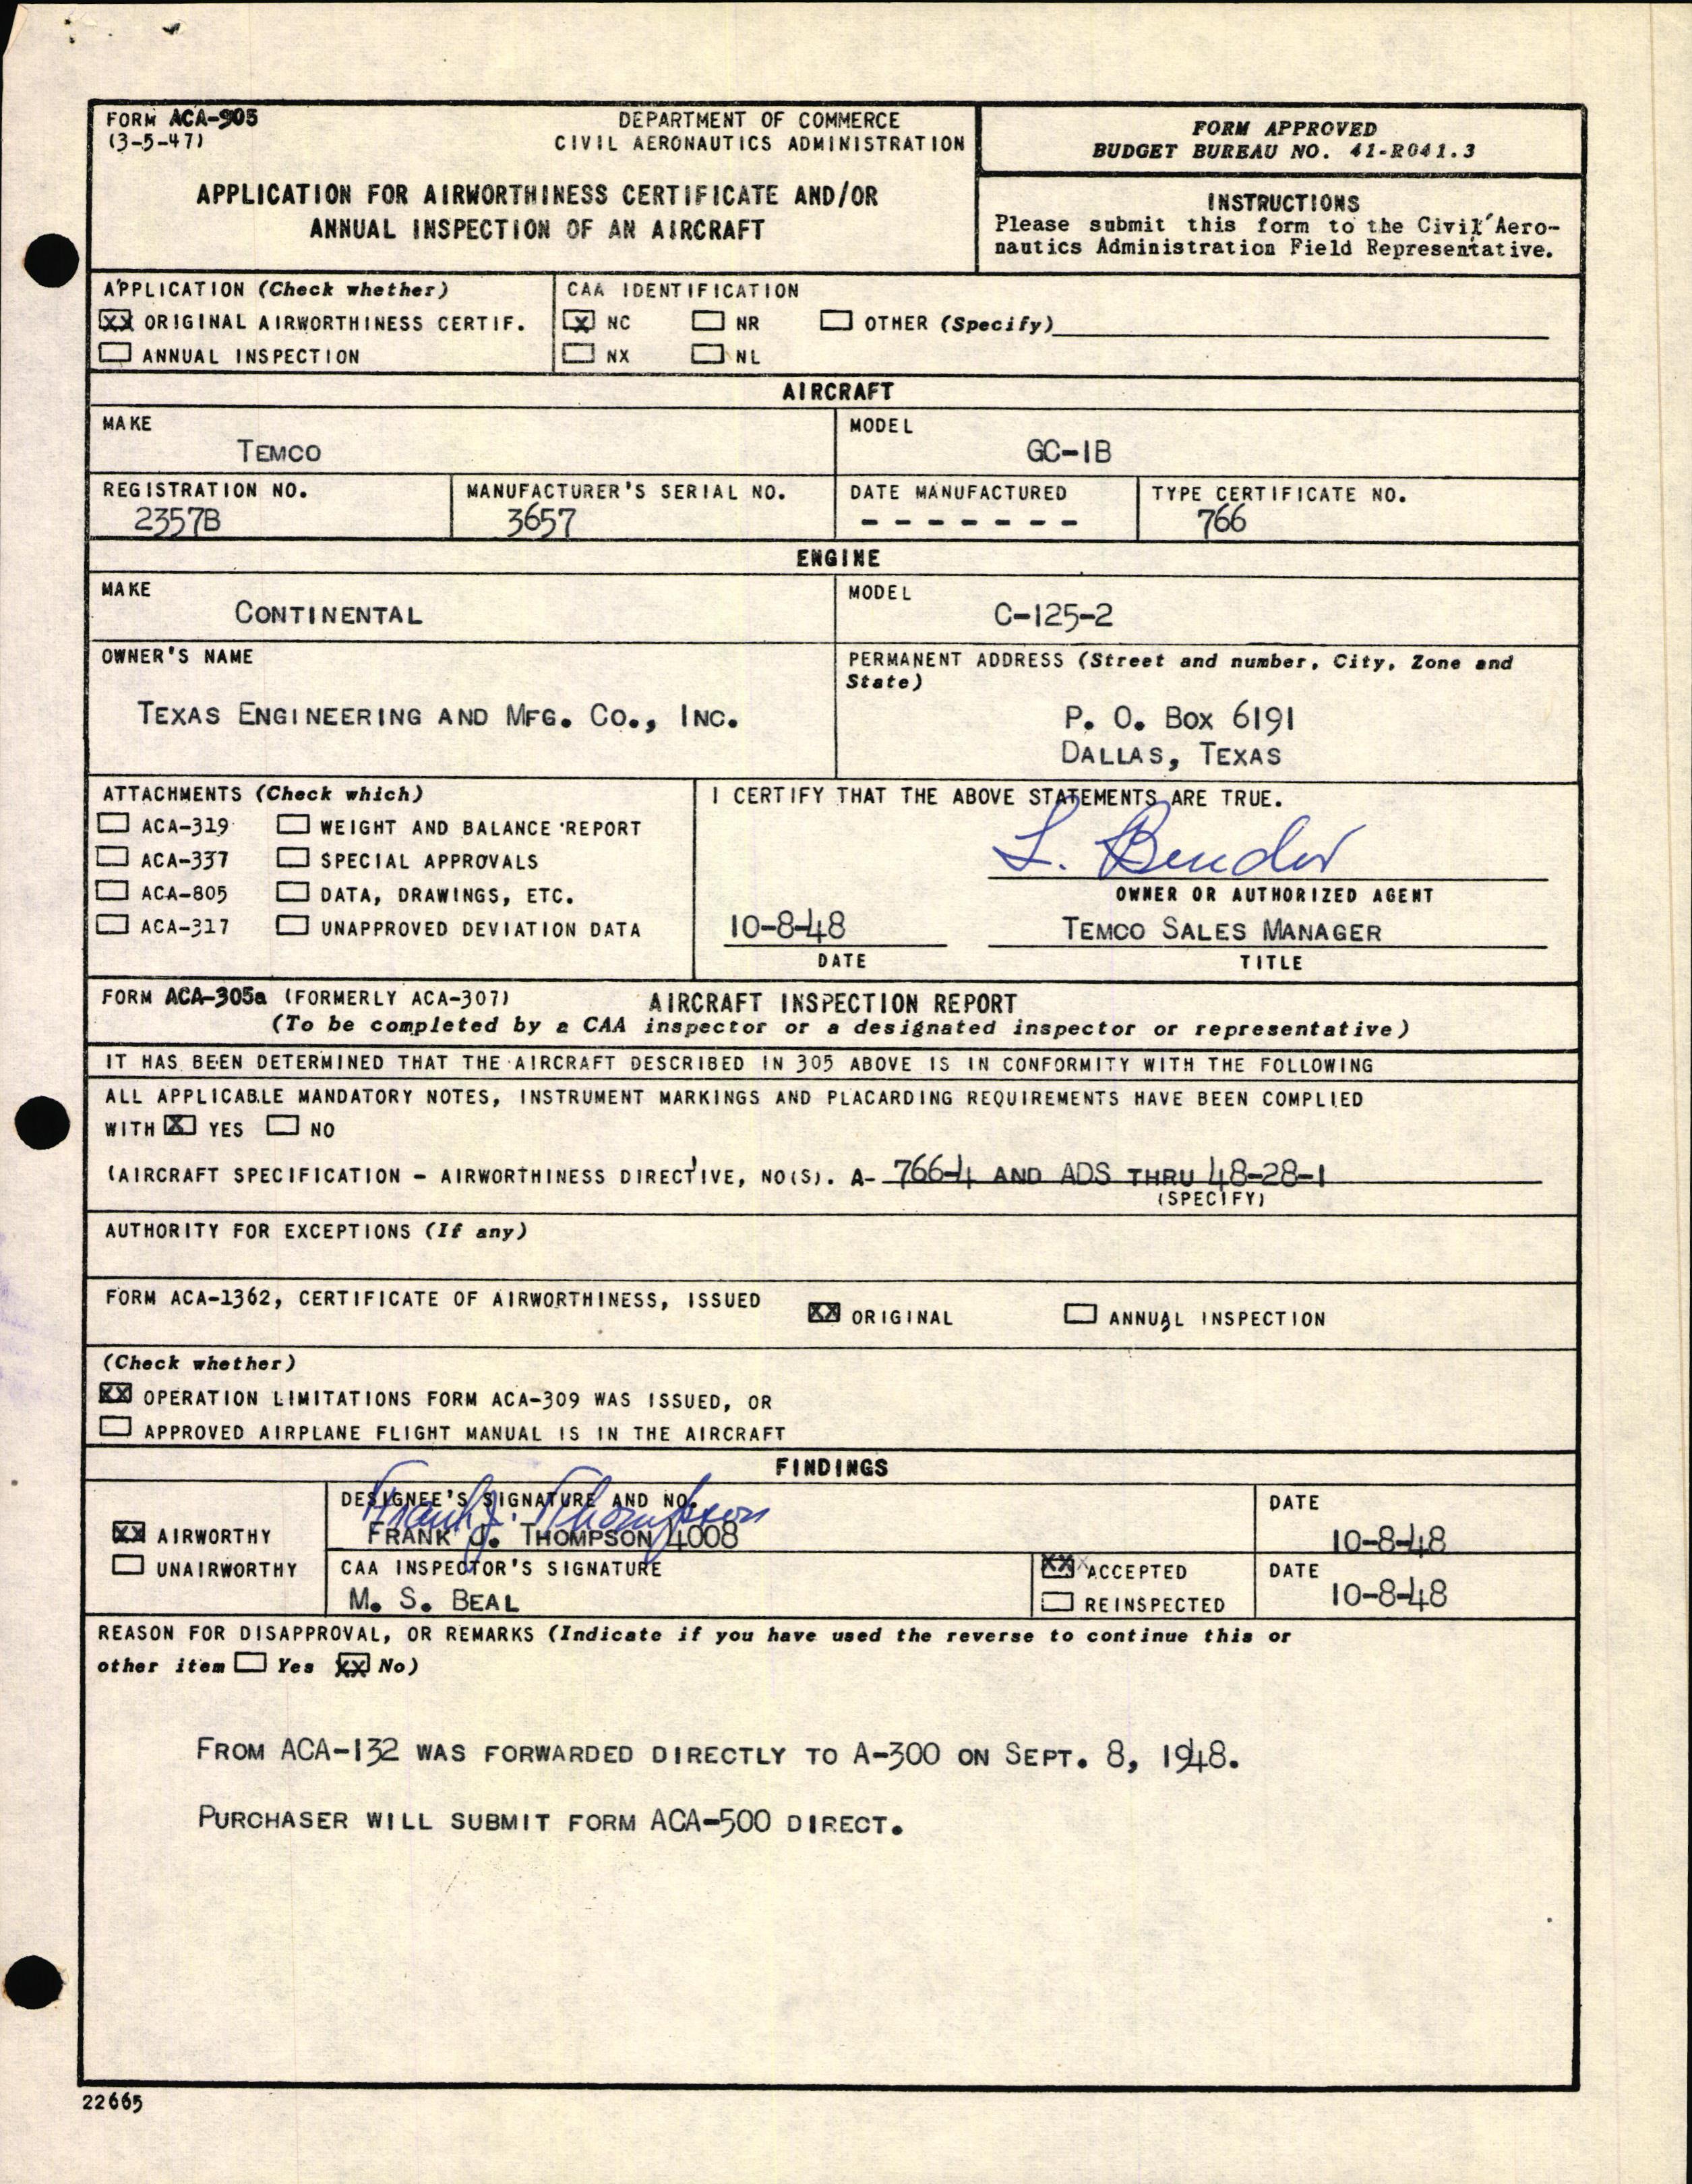 FORM ACA-305
(3-5-47)
DEPARTMENT OF COMMERCE
CIVIL AERONAUTICS ADMINISTRATION
APPLICATION FOR AIRWORTHINESS CERTIFICATE AND/OR
ANNUAL INSPECTION OF AN AIRCRAFT
FORM APPROVED
BUDGET BUREAU NO. 41-R041.3
INSTRUCTIONS
Please submit this form to the Civil Aero-
nautics Administration Field Representative.
APPLICATION (Check whether)
XX ORIGINAL AIRWORTHINESS CERTIF.
ANNUAL INSPECTION
CAA IDENTIFICATION
X NC NR OTHER (Specify)
NX NL
AIRCRAFT
MAKE
TEMCO
MODEL
GC-1B
REGISTRATION NO.
2357B
MANUFACTURER'S SERIAL NO.
3657
DATE MANUFACTURED
- - - - - - -
TYPE CERTIFICATE NO.
766
ENGINE
MAKE
CONTINENTAL
MODEL
C-125-2
OWNER'S NAME
TEXAS ENGINEERING AND MFG. CO., INC.
PERMANENT ADDRESS (Street and number, City, Zone and
State)
P. O. BOX 6191
DALLAS, TEXAS
ATTACHMENTS (Check which)
ACA-319 WEIGHT AND BALANCE REPORT
ACA-337 SPECIAL APPROVALS
ACA-805 DATA, DRAWINGS, ETC.
ACA-317 UNAPPROVED DEVIATION DATA
I CERTIFY THAT THE ABOVE STATEMENTS ARE TRUE.
L. Bender
OWNER OR AUTHORIZED AGENT
10-8-48
DATE
TEMCO SALES MANAGER
TITLE
FORM ACA-305a (FORMERLY ACA-307) AIRCRAFT INSPECTION REPORT
(To be completed by a CAA inspector or a designated inspector or representative)
IT HAS BEEN DETERMINED THAT THE AIRCRAFT DESCRIBED IN 305 ABOVE IS IN CONFORMITY WITH THE FOLLOWING
ALL APPLICABLE MANDATORY NOTES, INSTRUMENT MARKINGS AND PLACARDING REQUIREMENTS HAVE BEEN COMPLIED
WITH X YES NO
(AIRCRAFT SPECIFICATION - AIRWORTHINESS DIRECTIVE, NO(S). A- 766-4 AND ADS THRU 48-28-1
(SPECIFY)
AUTHORITY FOR EXCEPTIONS (If any)
FORM ACA-1362, CERTIFICATE OF AIRWORTHINESS, ISSUED XX ORIGINAL ANNUAL INSPECTION
(Check whether)
XX OPERATION LIMITATIONS FORM ACA-309 WAS ISSUED, OR
APPROVED AIRPLANE FLIGHT MANUAL IS IN THE AIRCRAFT
FINDINGS
XX AIRWORTHY
UNAIRWORTHY
DESIGNEE'S SIGNATURE AND NO.
Frank J. Thompson
FRANK J. THOMPSON 4008
DATE
10-8-48
CAA INSPECTOR'S SIGNATURE
M. S. BEAL
XX ACCEPTED
REINSPECTED
DATE
10-8-48
REASON FOR DISAPPROVAL, OR REMARKS (Indicate if you have used the reverse to continue this or
other item Yes XX No)
FROM ACA-132 WAS FORWARDED DIRECTLY TO A-300 ON SEPT. 8, 1948.
PURCHASER WILL SUBMIT FORM ACA-500 DIRECT.
22665